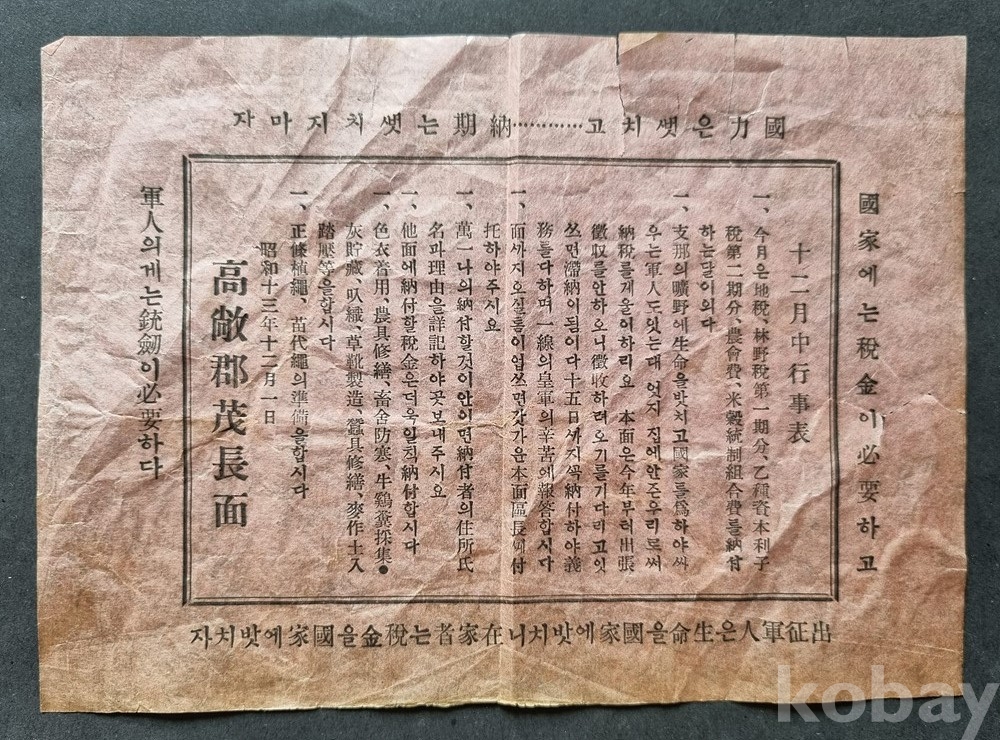 國力은쌧치고…………納期는쌧치지마자
國家에는稅金이必要하고
十二月中行事表
一、今月은地稅、林野稅第一期分、乙種資本利子
稅第二期分、農會費、米穀統制組合費를納付
하는달이외다
一、支那의曠野에生命을밧치고國家를爲하야싸
우는軍人도잇는대엇지집에안즌우리로써
納稅를게을이하리요 本面은今年부터出張
徵收를안하오니徵收하려오기를기다리고잇
쓰면滯納이됨이다十五日까지꼭納付하야義
務를다하며一線의皇軍의辛苦에報答합시다
一、面까지오실틈이업쓰면갓가운本面區長에付
托하야주시요
一、萬一나의納付할것이안이면納付者의住所氏
名과理由을詳記하야곳보내주시요
一、他面에納付할稅金은더욱일직納付합시다
一、色衣着用、農具修繕、畜舍防寒、牛鷄糞採集●
灰貯藏、叺織、草靴製造、蠶具修繕、麥作土入
踏壓等을합시다
一、正條植繩、苗代繩의準備을합시다
昭和十三年十二月一日
高敞郡茂長面
軍人의게는銃劒이必要하다
出征軍人은生命을國家에밧치니在家者는稅金을國家에밧치자
kobay